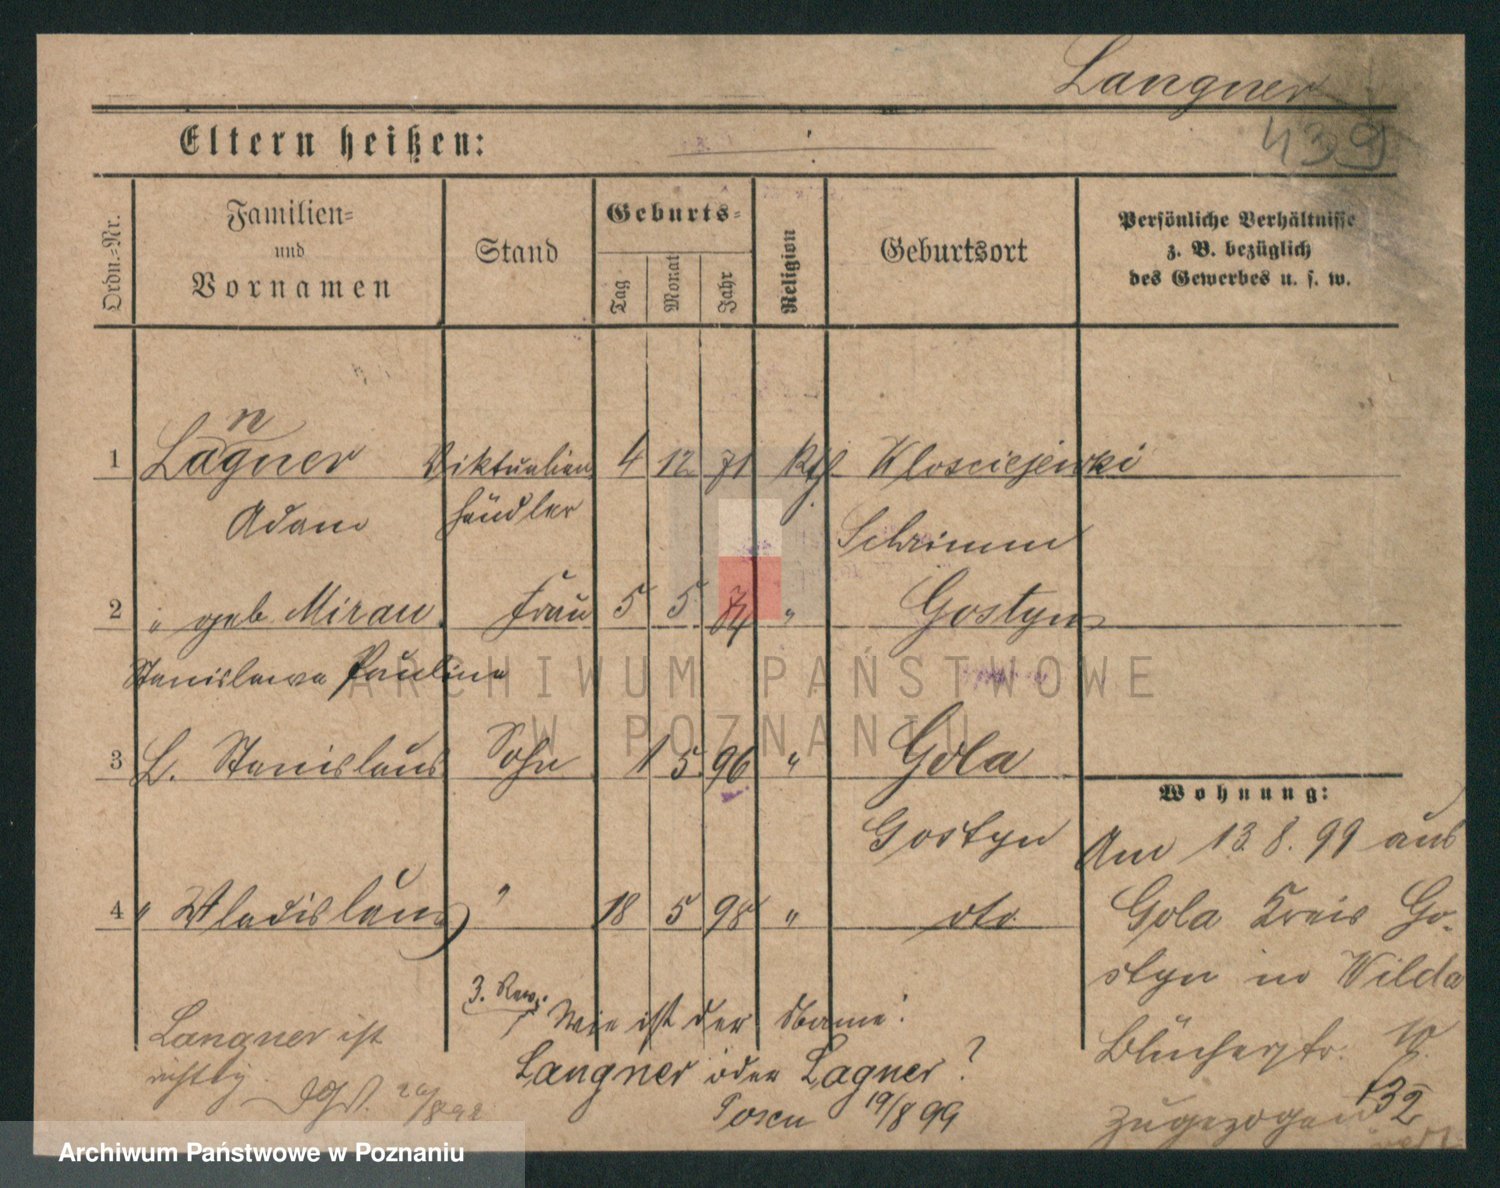 Langner
439
Eltern heißen:
Ordn.-Nr.
Familien-
und
Vornamen
Stand
Geburts-
Tag
Monat
Jahr
Religion
Geburtsort
Persönliche Verhältnisse
z. B. bezüglich
des Gewerbes u. s. w.
1 Langner Viktualien 4 12 71 Kth Klosciejewki
Adam händler Schrimm
2 " geb. Mirau Frau 5 5 74 " Gostyn
Stanislawa Pauline
3 L. Stanislaus Sohn 1 5 96 " Gola
Gostyn
4 " Wladislaus " 18 5 98 " dto
Wohnung:
Am 13.8.99 aus
Gola Kreis Go-
styn in Wilda
Blücherstr. 10
zugezogen
132
3. Rev.
Wie ist der Name:
Langner oder Lagner?
Posen 19/8 99
Langner ist
richtig
ARCHIWUM PAŃSTWOWE
W POZNANIU
Archiwum Państwowe w Poznaniu